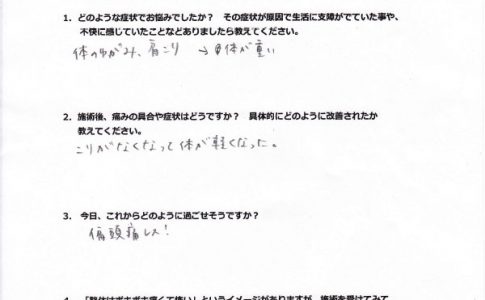 1. どのような症状でお悩みでしたか？ その症状が原因で生活に支障がでていた事や、
不快に感じていたことなどありましたら教えてください。
体のゆがみ、肩こり → 体が重い
2. 施術後、痛みの具合や症状はどうですか？ 具体的にどのように改善されたか
教えてください。
こりがなくなって体が軽くなった。
3. 今日、これからどのように過ごせそうですか？
偏頭痛レス！
4. 「整体はボキボキ痛くて怖い」というイメージがありますが、施術を受けてみて